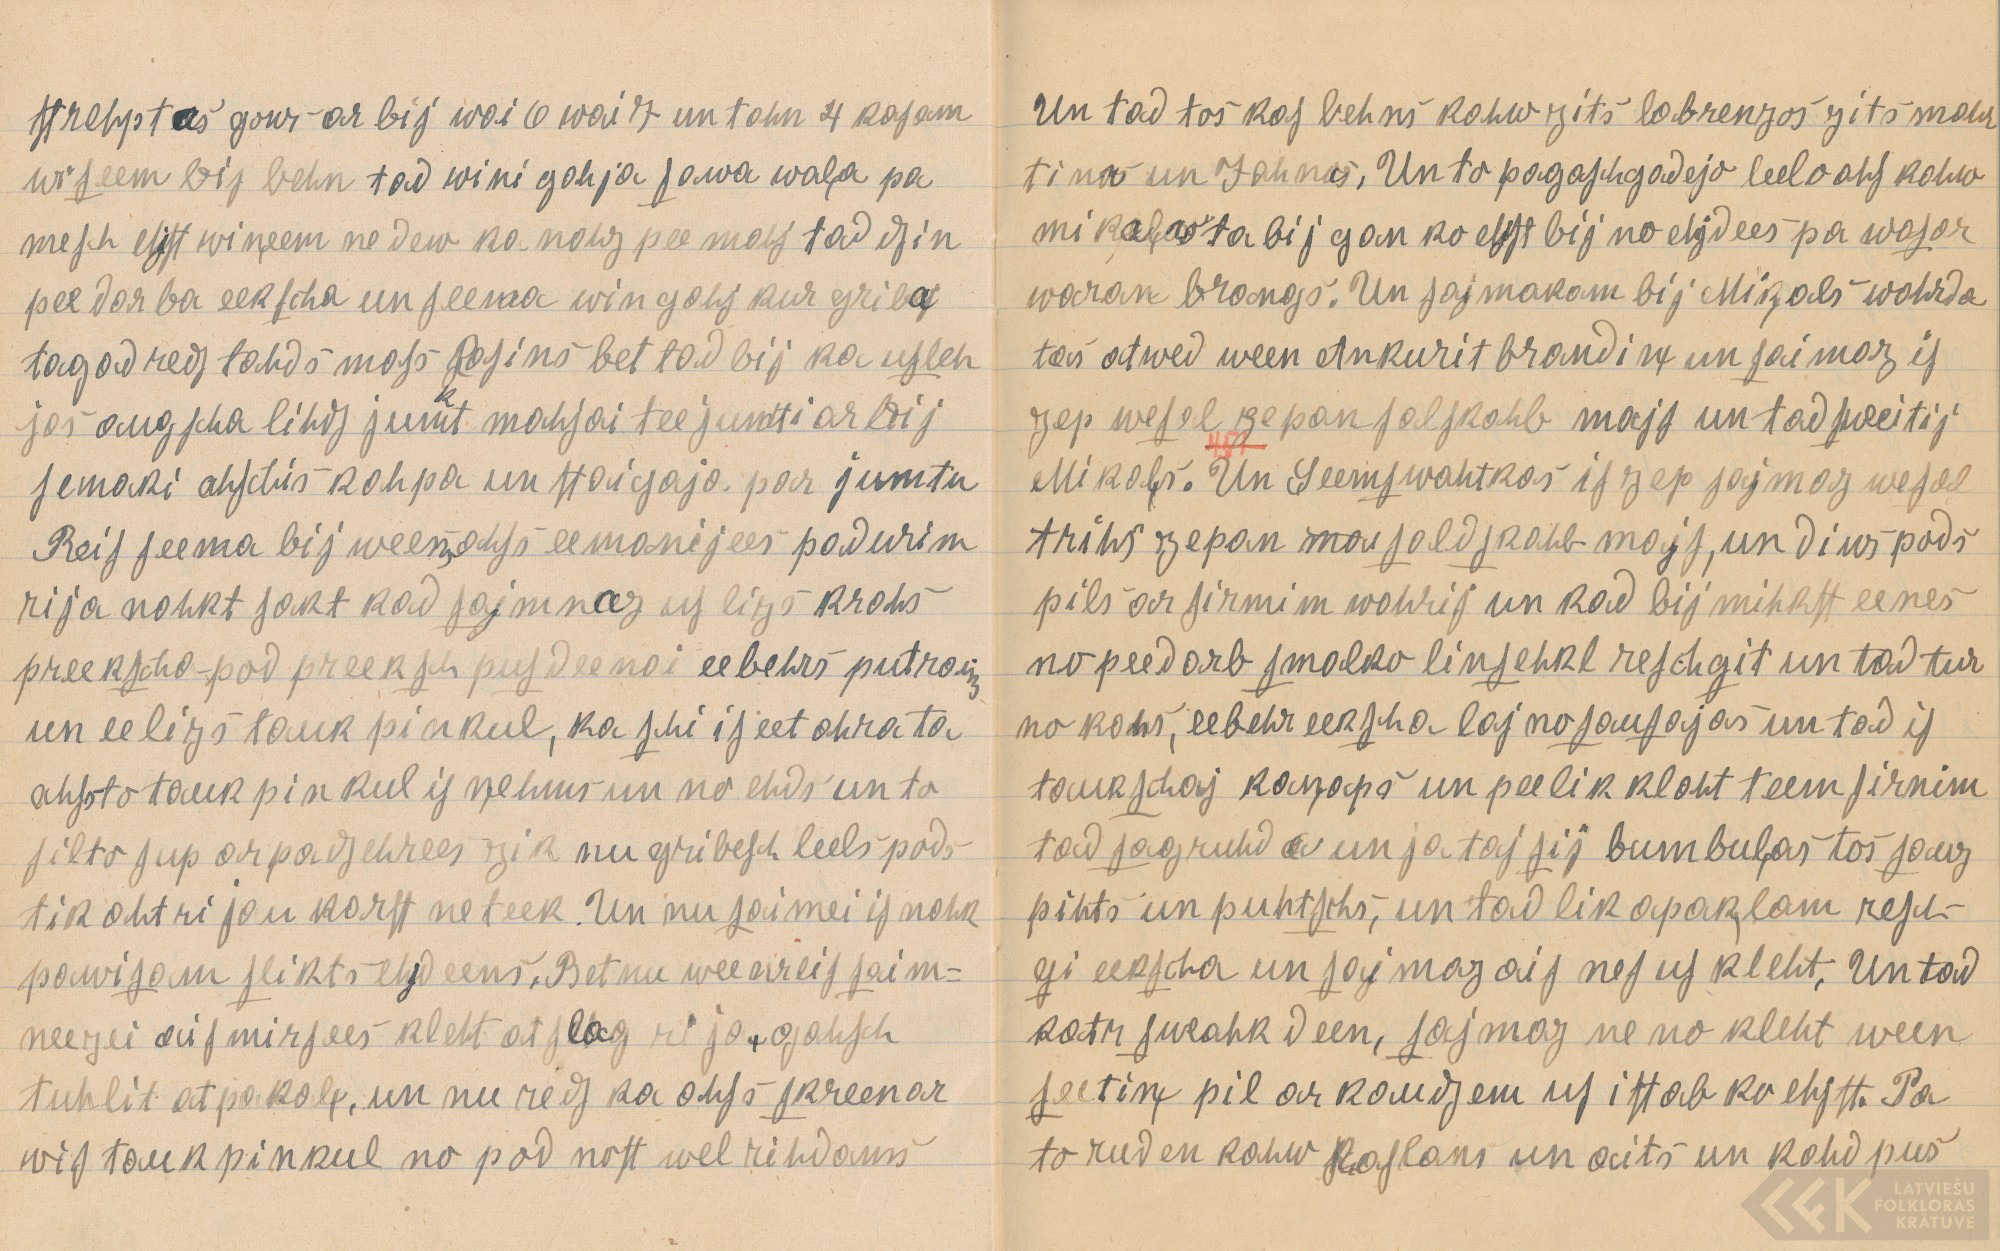 strehptas gows ar bij wai 6 wai 7 un tahn 4 kasam
wiseem bij behn tad wini gahja sawa waļa pa
mesch ehst wiņeem nedew ka nahz pee mahj tad dzin
peedarba eekscha un seema win gahj kur gribej
tagad redz tahds mass Pasins bet tad bij ka usleh
jas augscha lihdz jumt mahjai tee jumti ar bij
semaki ahschis kahpa un staigaja par jumtu
Reis seema bij weenz ahss eemanijees pa durim
rija nahkt sakt kad sajmnaz us lizs krahs
preekscha pod preeksch pusdeenai eebehrs putraim
un eelizs tauk pinkul, ka schi iseet ahra ta
ahss to tauk pinkul isņehmis un noehds un to
silto sup ar padzehrees zik nu gribesch leels pods
tik ahtri jau karst neteek. Un nu saimei isnahk
pawisam slikts ehdeens. Bet nu weenreis saim=
neezei aismirsees kleht atslag rija, gahsch
tuhlit atpakaļ, un nu redz ka ahss skreen ar
wis tauk pinkul no pod nost wel rihdams
Un tad tos kas behns kahw zits labrenzos zits mahr
tinas un Jahnas, Un to pagaschgadejo leelo ahs kahw
mikaļos ta bij gan ko ehst bij noehdees pa wasar
waran brangs. Un sajmakam bij Mikals wahrda
tas atwed ween Ankurit brandiņ un saimaz is
zep wesel zepan salskahb majs un tad sweitij
Mikaļs. 457 Un Seemswahtkas iszep sajmaz wesel
trihs zepan saldskahb majs, un diws pods
pils ar sirnim wahrij un kad bij mihkst eenes
no peedarb smalko linsehkl reschgit un tad tur
no kahs, eebehr eekscha laj nosausajas un tad is
taukschaj kaņaps un peelik klaht teem sirnim
tad sagruhd a un ja taj sij bumbuļas tos sauz
pihts un puhtschs, un tad lik apakļam resch-
gi eekscha un sajmaz ais nes us kleht, Un tad
katr swahk deen, sajmaz ne no kleht ween
seetiņ pil ar kaudzem us istab ko ehst. Pa
to ruden kahw Kaslans un aits un kahd pus
LATVIEŠU
FOLKLORAS
KRĀTUVE